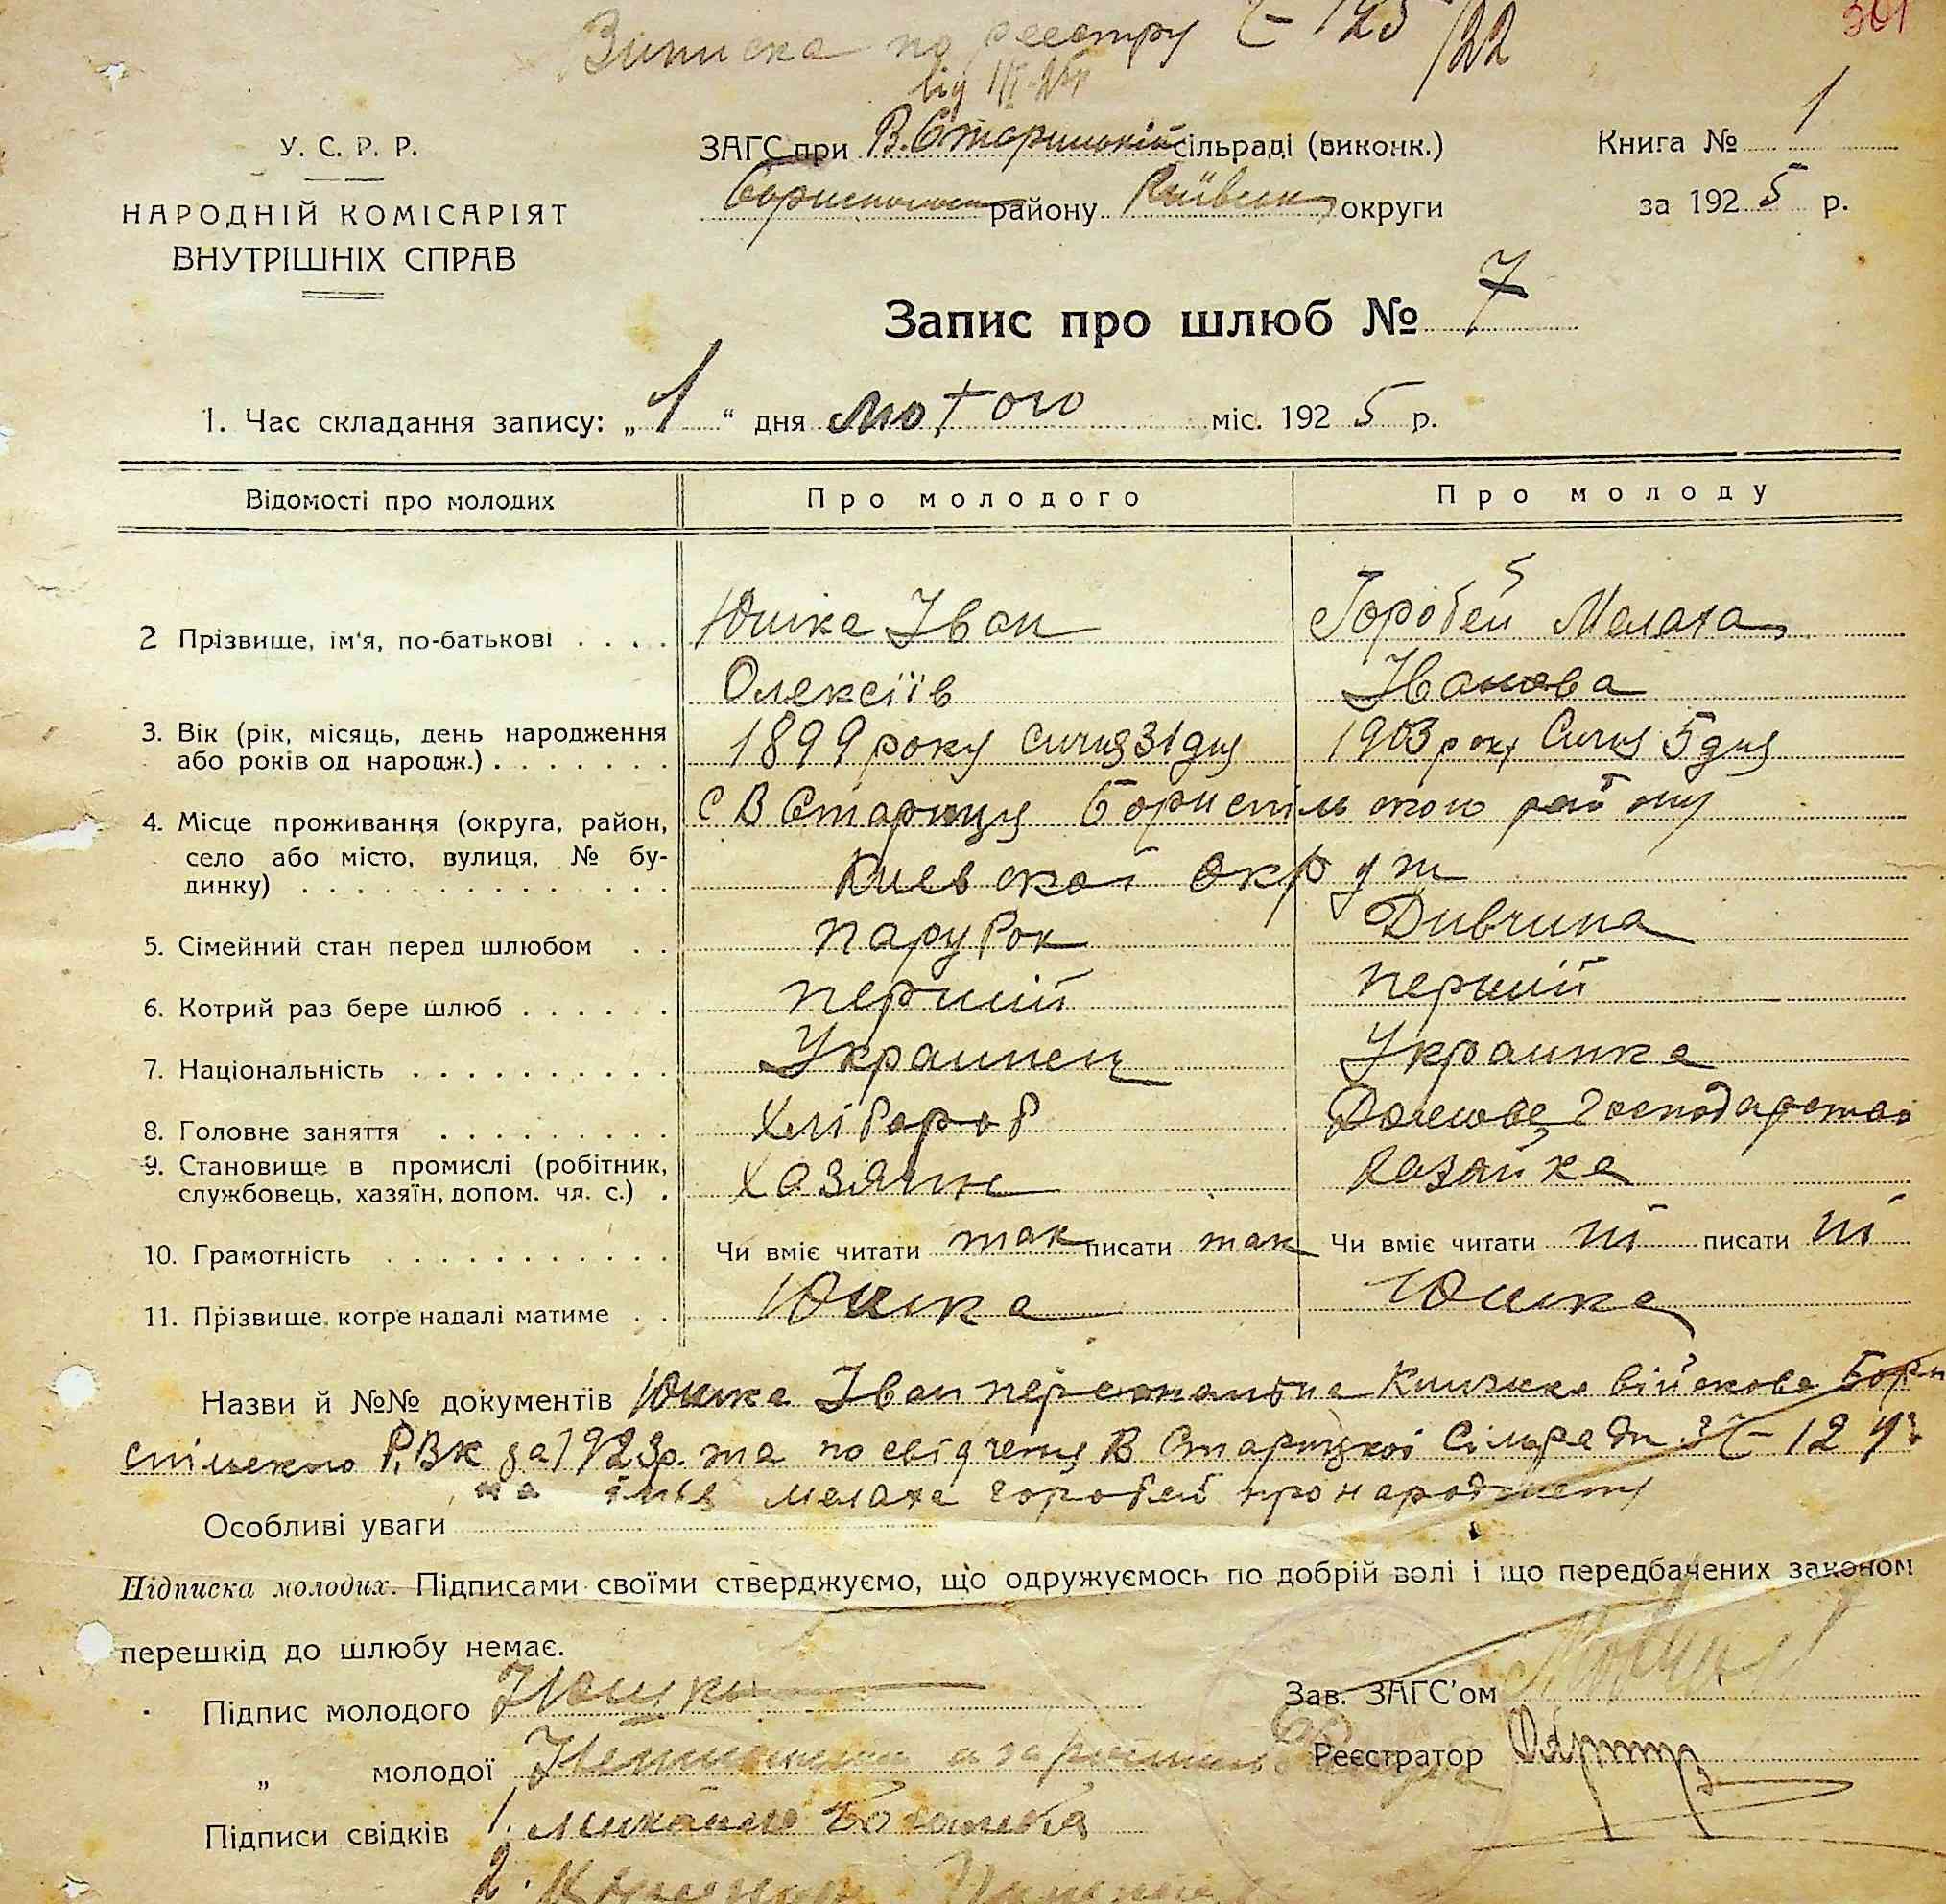 Виписка по реєстру Z-125/22
від
301
У. С. Р. Р.
НАРОДНІЙ КОМІСАРІЯТ
ВНУТРІШНІХ СПРАВ
ЗАГС при В. Старицькій сільраді (виконк.)
району Київськ округи
Книга № 1
за 1925 р.
Запис про шлюб № 7
1. Час складання запису: „1“ дня лютого міс. 1925 р.
Відомості про молодих
Про молодого
Про молоду
2 Прізвище, ім'я, по-батькові . . . . Юшка Іван Горобей Малаха
Олексіїв Іванова
3. Вік (рік, місяць, день народження 1899 року Сичня 31 дня 1903 року Сичня 5 дня
або років од народж.) . . . . . . .
4. Місце проживання (округа, район, с В Стариця Бориспільского району
село або місто, вулиця, № бу-
динку) . . . . . . . . . . . . . . Киевской Округи
5. Сімейний стан перед шлюбом . . парубок Дивчина
6. Котрий раз бере шлюб . . . . . . перший перший
7. Національність . . . . . . . . . . Украинец Украинка
8. Головне заняття . . . . . . . . . Хлібороб Домове Господарство
9. Становище в промислі (робітник,
службовець, хазяїн, допом. чл. с.) . Хазяин Хазяйка
10. Грамотність . . . . . . . . . . . Чи вміє читати так писати так Чи вміє читати ні писати ні
11. Прізвище котре надалі матиме . . Юшка Юшка
Назви й №№ документів Юшка Іван персональна Книжка військова Бори
спільского Р.В.К за 1923р. та посвідченя В Старицкої Сільради
на імья Малаха горобей про народженя
Особливі уваги
Підписка молодих. Підписами своїми стверджуємо, що одружуємось по добрій волі і що передбачених законом
перешкід до шлюбу немає.
Підпис молодого Юшка
„ молодої Неписьменна а за
Підписи свідків 1. Михайло
2.
Зав. ЗАГС'ом
Реєстратор